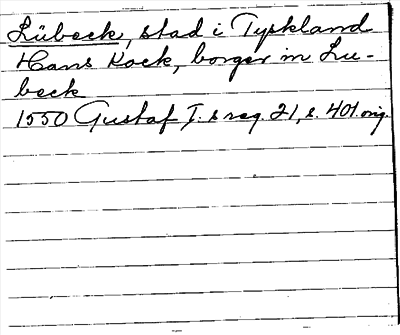 Lübeck, stad i Tyskland
Hans Kock, borger in Lu-
beck
1550 Gustaf I:s reg. 21, s. 401. orig.